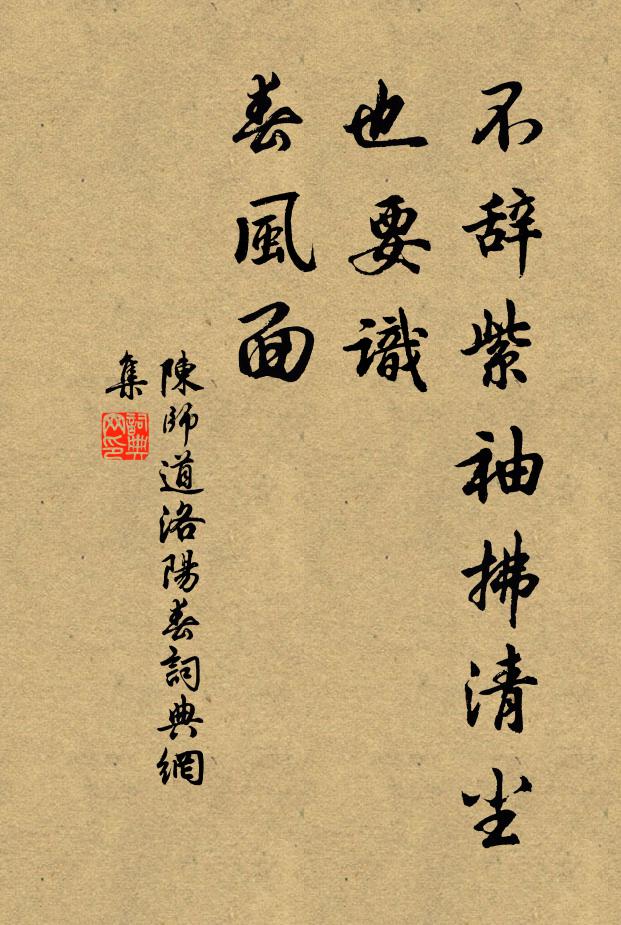 不辞紫袖拂清尘
也要識
春風面
陳師道洛陽春詞典網
集
詞典
网印